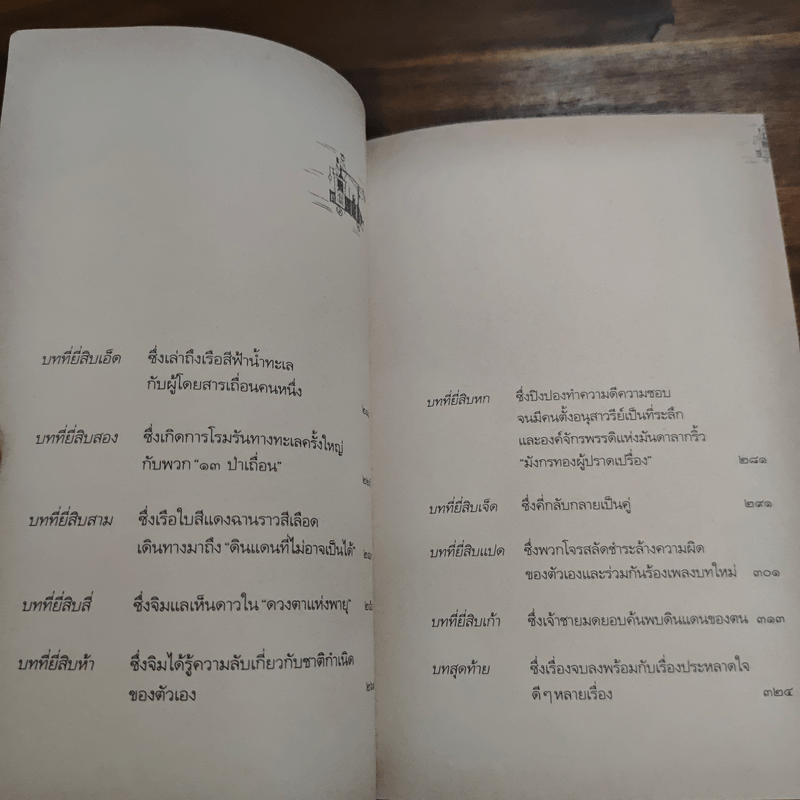 บทที่ยี่สิบเอ็ด ซึ่งเล่าถึงเรือสีฟ้าน้ำทะเล
กับผู้โดยสารเถื่อนคนหนึ่ง
บทที่ยี่สิบสอง ซึ่งเกิดการโรมรันทางทะเลครั้งใหญ่
กับพวก "๑๓ ป่าเถื่อน"
บทที่ยี่สิบสาม ซึ่งเรือใบสีแดงฉานราวสีเลือด
เดินทางมาถึง "ดินแดนที่ไม่อาจเป็นได้"
บทที่ยี่สิบสี่ ซึ่งจิมแลเห็นดาวใน "ดวงตาแห่งพายุ"
บทที่ยี่สิบห้า ซึ่งจิมได้รู้ความลับเกี่ยวกับชาติกำเนิด
ของตัวเอง
บทที่ยี่สิบหก ซึ่งปิงปองทำความดีความชอบ
จนมีคนตั้งอนุสาวรีย์เป็นที่ระลึก
และองค์จักรพรรดิแห่งมันดาลากริ้ว
"มังกรทองผู้ปราดเปรื่อง" ๒๘๑
บทที่ยี่สิบเจ็ด ซึ่งคี่กลับกลายเป็นคู่ ๒๙๑
บทที่ยี่สิบแปด ซึ่งพวกโจรสลัดชำระล้างความผิด
ของตัวเองและร่วมกันร้องเพลงบทใหม่ ๓๐๑
บทที่ยี่สิบเก้า ซึ่งเจ้าชายมดยอบค้นพบดินแดนของตน ๓๑๓
บทสุดท้าย ซึ่งเรื่องจบลงพร้อมกับเรื่องประหลาดใจ
ดีๆ หลายเรื่อง ๓๒๔